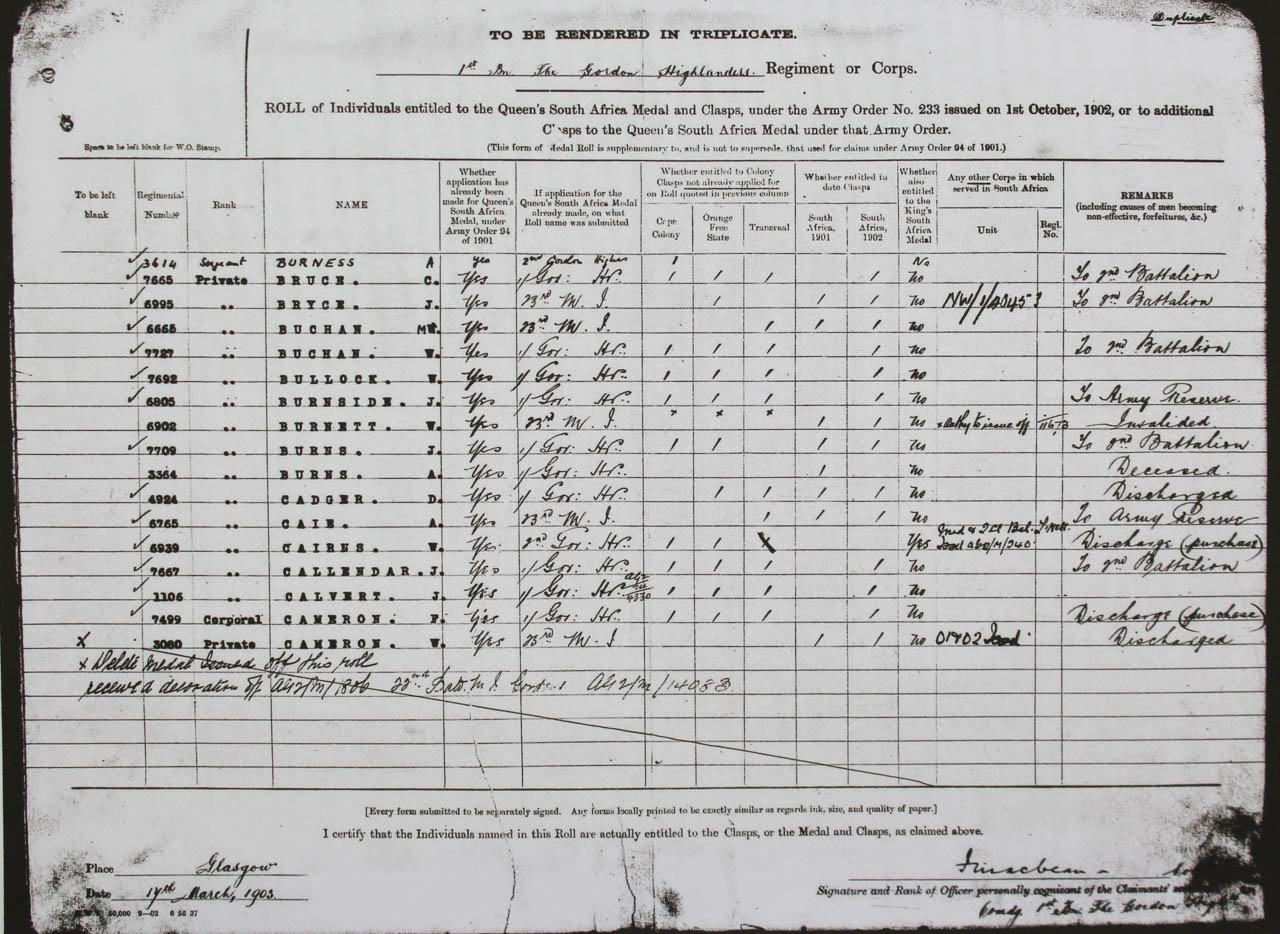 Duplicate
TO BE RENDERED IN TRIPLICATE.
1st Bn The Gordon Highlanders. Regiment or Corps.
ROLL of Individuals entitled to the Queen's South Africa Medal and Clasps, under the Army Order No. 233 issued on 1st October, 1902, or to additional
C'asps to the Queen's South Africa Medal under that Army Order.
Space to be left blank for W.O. Stamp.
(This form of Medal Roll is supplementary to, and is not to supersede, that used for claims under Army Order 94 of 1901.)
To be left blank
Regimental Number
Rank
NAME
Whether application has already been made for Queen's South Africa Medal, under Army Order 94 of 1901
If application for the Queen's South Africa Medal already made, on what Roll name was submitted
Whether entitled to Colony Clasps not already applied for on Roll quoted in previous column
Cape Colony
Orange Free State
Transvaal
Whether entitled to date Clasps
South Africa, 1901
South Africa, 1902
Whether also entitled to the King's South Africa Medal
Any other Corps in which served in South Africa
Unit
Regl. No.
REMARKS
(including causes of men becoming non-effective, forfeitures, &c.)
✓ 3614 Sergeant BURNESS A Yes 2nd Gordon Highrs / No
✓ 7665 Private BRUCE. C. Yes 1/ Gor: Hr. / / / / No To 2nd Battalion
✓ 6995 .. BRYCE. J. Yes 23rd M. I. / / / No To 2nd Battalion
✓ 6665 .. BUCHAN. MW. Yes 23rd M. I. / / / No
✓ 7727 .. BUCHAN. W. Yes 1/ Gor: Hr. / / / / No To 2nd Battalion
✓ 7692 .. BULLOCK. W. Yes 1/ Gor: Hr. / / / / No
✓ 6805 .. BURNSIDE. J. Yes 1/ Gor: Hr. / / / / No To Army Reserve.
6902 .. BURNETT. W. Yes 23rd M. I. x x x / / No Invalided
✓ 7709 .. BURNS. J. Yes 1/ Gor: Hr. / / / / No To 2nd Battalion
3364 .. BURNS. A. Yes 1/ Gor: Hr. / No Deceased.
✓ 4924 .. CADGER. D. Yes 1/ Gor: Hr. / / / / No Discharged
✓ 6765 .. CAIE. A. Yes 23rd M. I. / / / No To Army Reserve
✓ 6939 .. CAIRNS. W. Yes 2nd Gor: Hr. / / Yes Discharge (purchase)
✓ 7667 .. CALLENDAR. J. Yes 1/ Gor: Hr. / / / / No To 2nd Battalion
✓ 1106 .. CALVERT. J. Yes 1/ Gor: Hr. / / / / No
✓ 7499 Corporal CAMERON. F. Yes 1/ Gor: Hr. / / / / No Discharge (purchase)
x 3060 Private CAMERON. W. Yes 23rd M. I / / No Discharged
x Delete medal Issued off this roll
received decoration off AG2/M/1806 Batt. M. I. AG2/M/14083
[Every form submitted to be separately signed. Any forms locally printed to be exactly similar as regards ink, size, and quality of paper.]
I certify that the Individuals named in this Roll are actually entitled to the Clasps, or the Medal and Clasps, as claimed above.
Place Glasgow
Date 17th March, 1903.
50,000 9—02 6 56 37
Signature and Rank of Officer personally cognizant of the Claimants'
Comdg. 1st Bn The Gordon